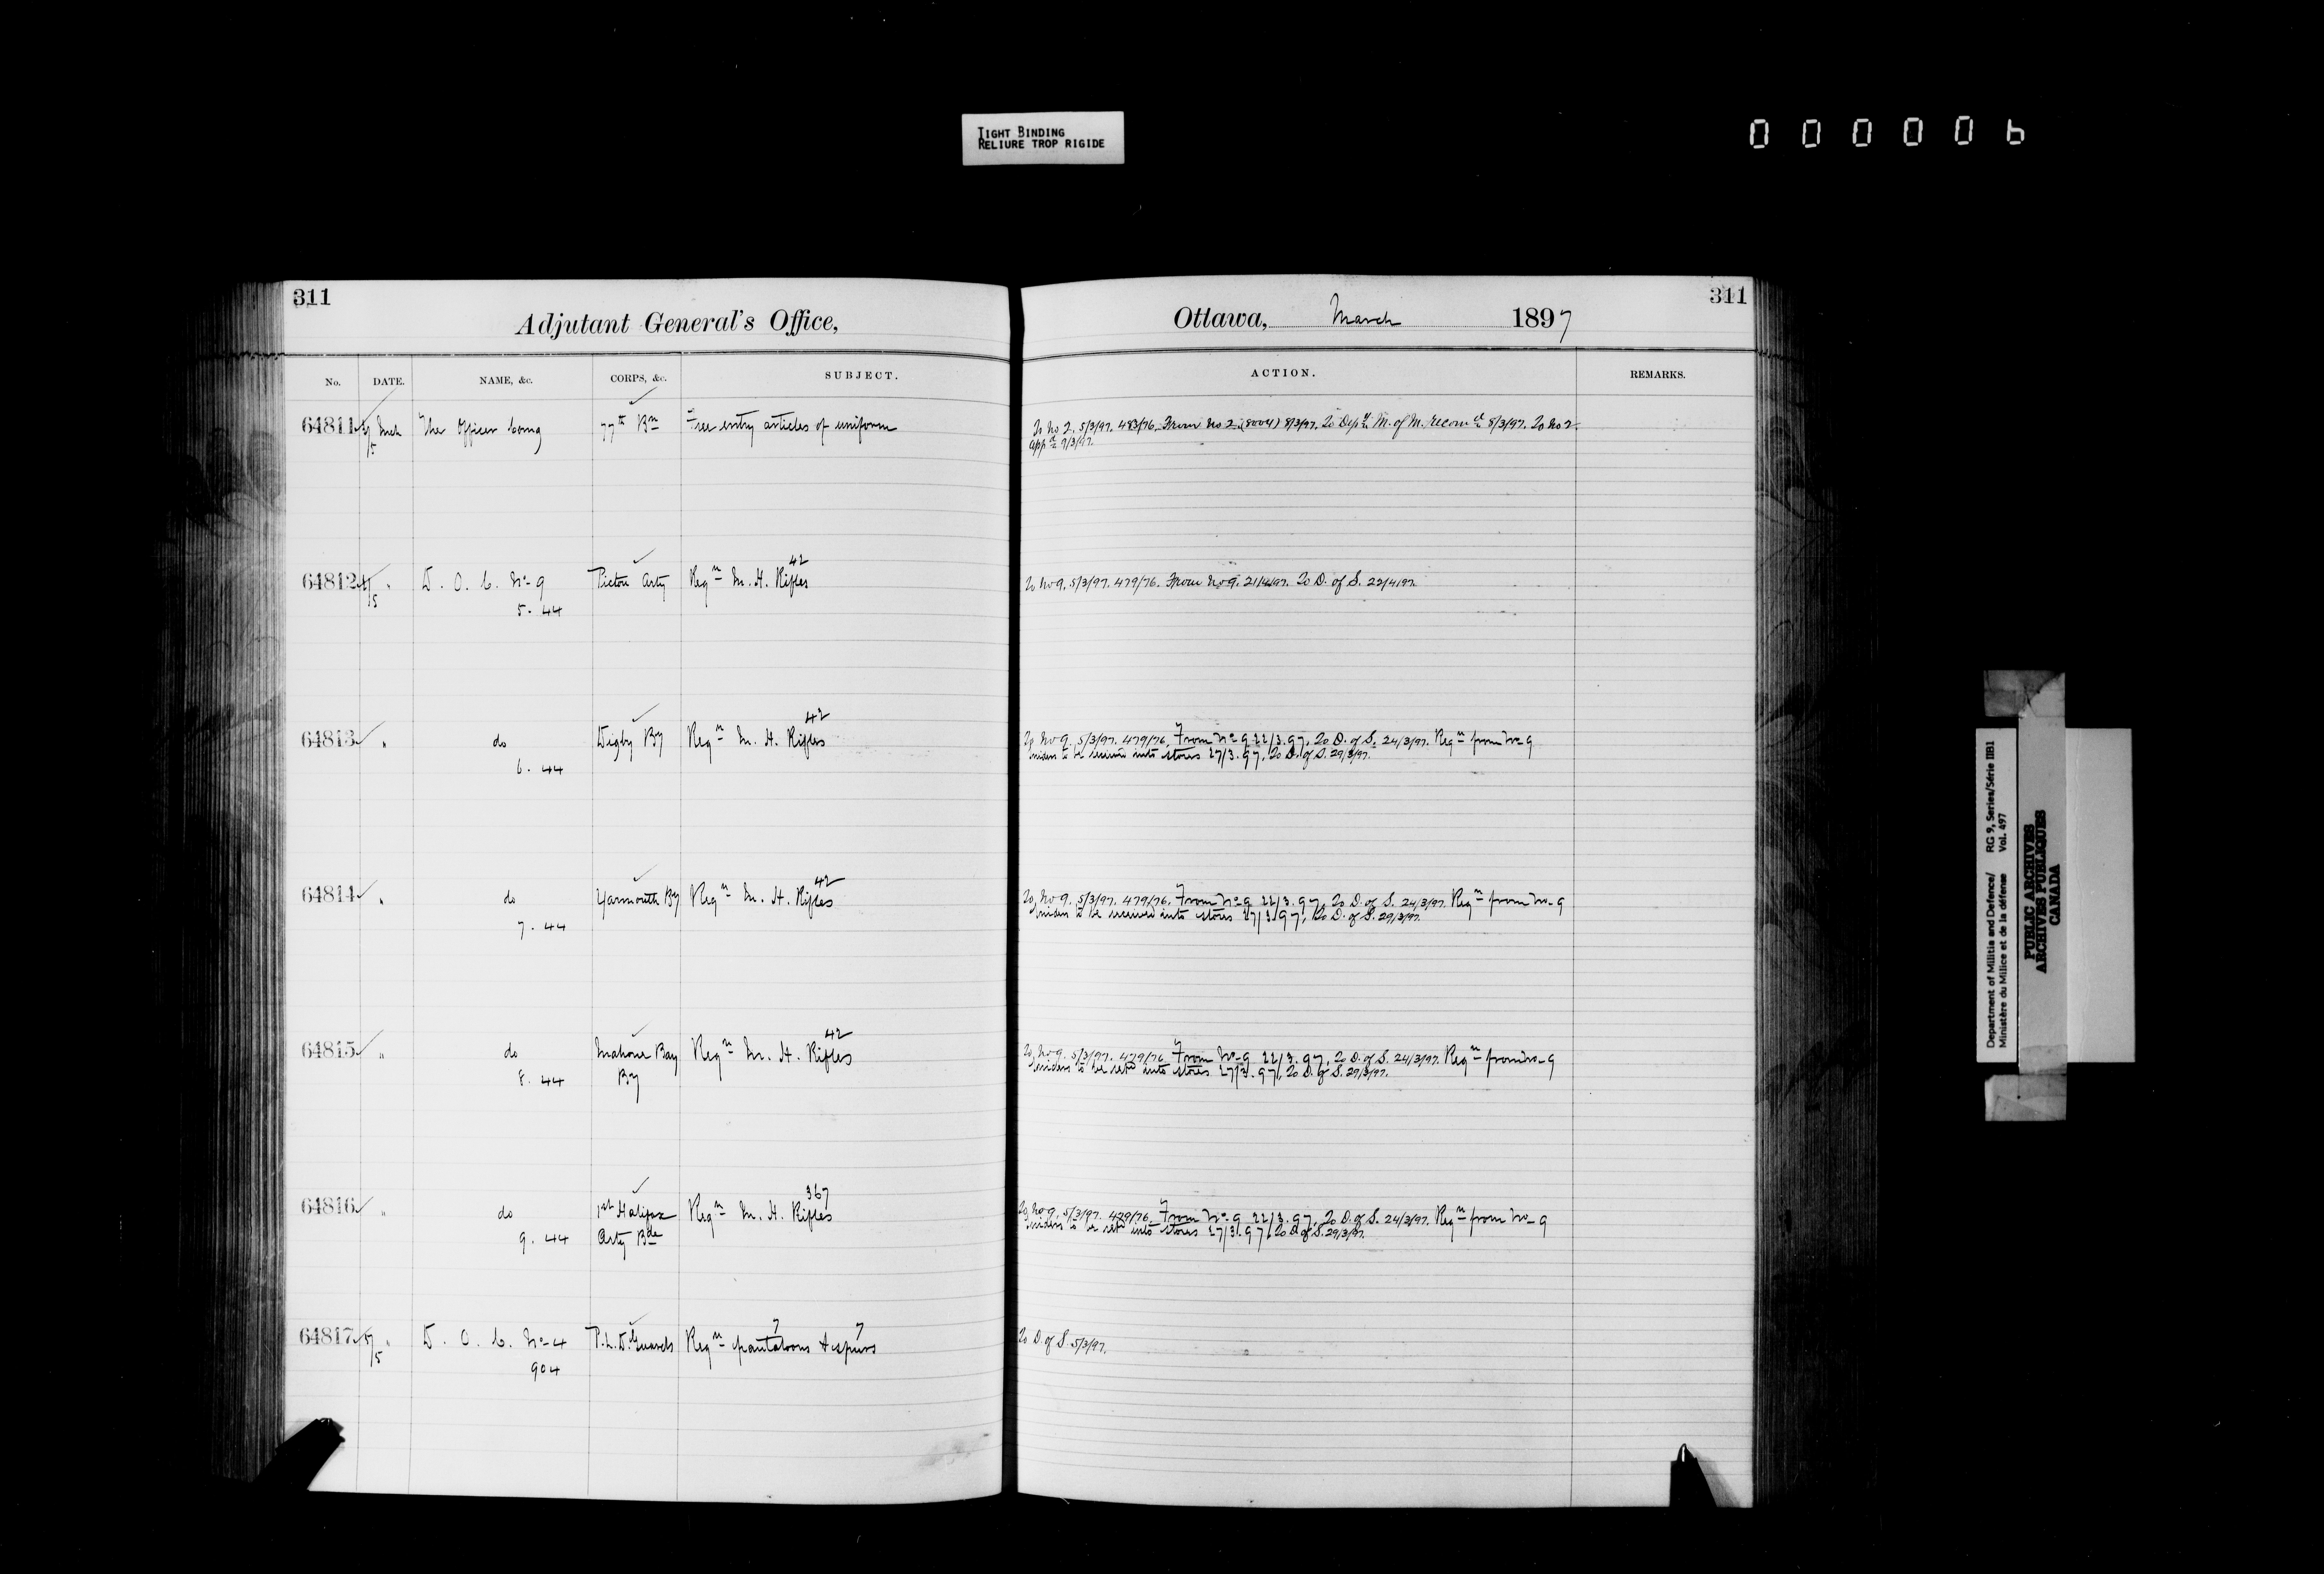 TIGHT BINDING
RELIURE TROP RIGIDE
000006
311
Adjutant General's Office,
No. DATE. NAME, &c. CORPS, &c. SUBJECT.
64811 4/5 Mch The Officer Comg 77th Bn Free entry articles of uniform
42
64812 4/5 " D. O. C. No 9 Pictou Arty Reqn M. H. Rifles
5. 44
42
64813 " do Digby By Reqn M. H. Rifles
6. 44
42
64814 " do Yarmouth By Reqn M. H. Rifles
7. 44
42
64815 " do Mahone Bay Reqn M. H. Rifles
8. 44 By
367
64816 " do 1st Halifax Reqn M. H. Rifles
9. 44 Arty Bde
7 7
64817 5 " D. O. C. No 4 P.L.D. Guards Reqn pantaloons & spurs
904
311
Ottawa, March 1897
ACTION. REMARKS.
To No 2, 5/3/97. 483/76. From No 2 (8004) 8/3/97. To Depy. M. of M. recomd 8/3/97. To No 2.
appd 9/3/97.
To No 9, 5/3/97. 479/76. From No 9. 21/4/97. To D. of S. 22/4/97.
To No 9, 5/3/97. 479/76. From No 9 22/3.97, To D. of S. 24/3/97. Reqn from No 9
to be received into stores 27/3.97, To D. of S. 29/3/97.
To No 9, 5/3/97. 479/76. From No 9 22/3.97, To D. of S. 24/3/97. Reqn from No 9
to be received into stores 27/3.97, To D. of S. 29/3/97.
To No 9. 5/3/97. 479/76 From No 9 22/3.97, To D. of S. 24/3/97. Reqn from No 9
to be recd into stores 27/3.97, To D. of S. 29/3/97.
To No 9, 5/3/97. 479/76 From No 9 22/3.97, To D. of S. 24/3/97. Reqn from No 9
to be recd into stores 27/3.97, To D. of S. 29/3/97.
To D. of S. 5/3/97.
Department of Militia and Defence/ RG 9, Series/Série IIB1
Ministère du Milice et de la défense Vol. 497
PUBLIC ARCHIVES
ARCHIVES PUBLIQUES
CANADA